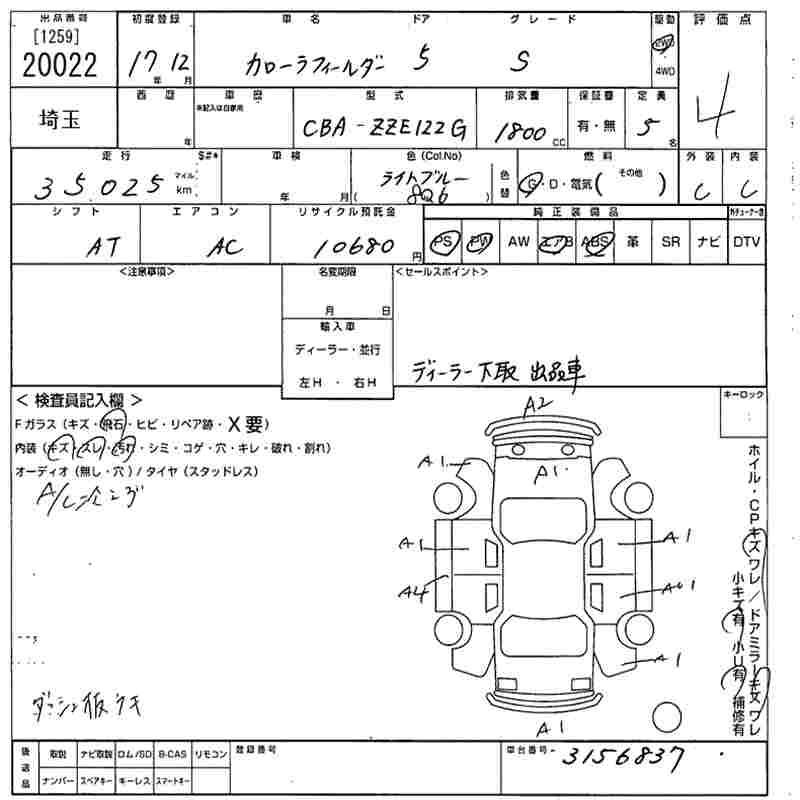 出品番号 初度登録 車名 ドア グレード 駆動 評価点
[1259]
20022 17年 12月 カローラフィールダー 5 S 2WD 4WD 4
埼玉 西暦 年 車歴 ※記入は自家用 型式 排気量 保証書 定員
CBA-ZZE122G 1800cc 有・無 5名
走行 $#* 車検 色(Col.No) 燃料 外装 内装
35,025 マイル km 年 月 ライトブルー 色替 G・D・電気( その他 ) C C
( 826 )
シフト エアコン リサイクル預託金 純正装備品
AT AC 10680円 PS PW AW エアB ABS 革 SR ナビ DTV
<注意事項> 名変期限 <セールスポイント>
月 日
輸入車
ディーラー・並行
左H ・ 右H
ディーラー下取 出品車
<検査員記入欄> キーロック
Fガラス(キズ・飛石・ヒビ・リペア跡・X要)
内装(キズ・スレ・汚れ・シミ・コゲ・穴・キレ・破れ・割れ)
オーディオ(無し・穴)/タイヤ(スタッドレス)
A2
A1
A1
A1
A1
A4
A1
A1
ホイル・CPキズワレ/ドアミラーキズワレ
小キズ有 小U有 補修有
後送品 取説 ナビ取説 ロム/SD B-CAS リモコン 登録番号 車台番号
ナンバー スペアキー キーレス スマートキー
3156837